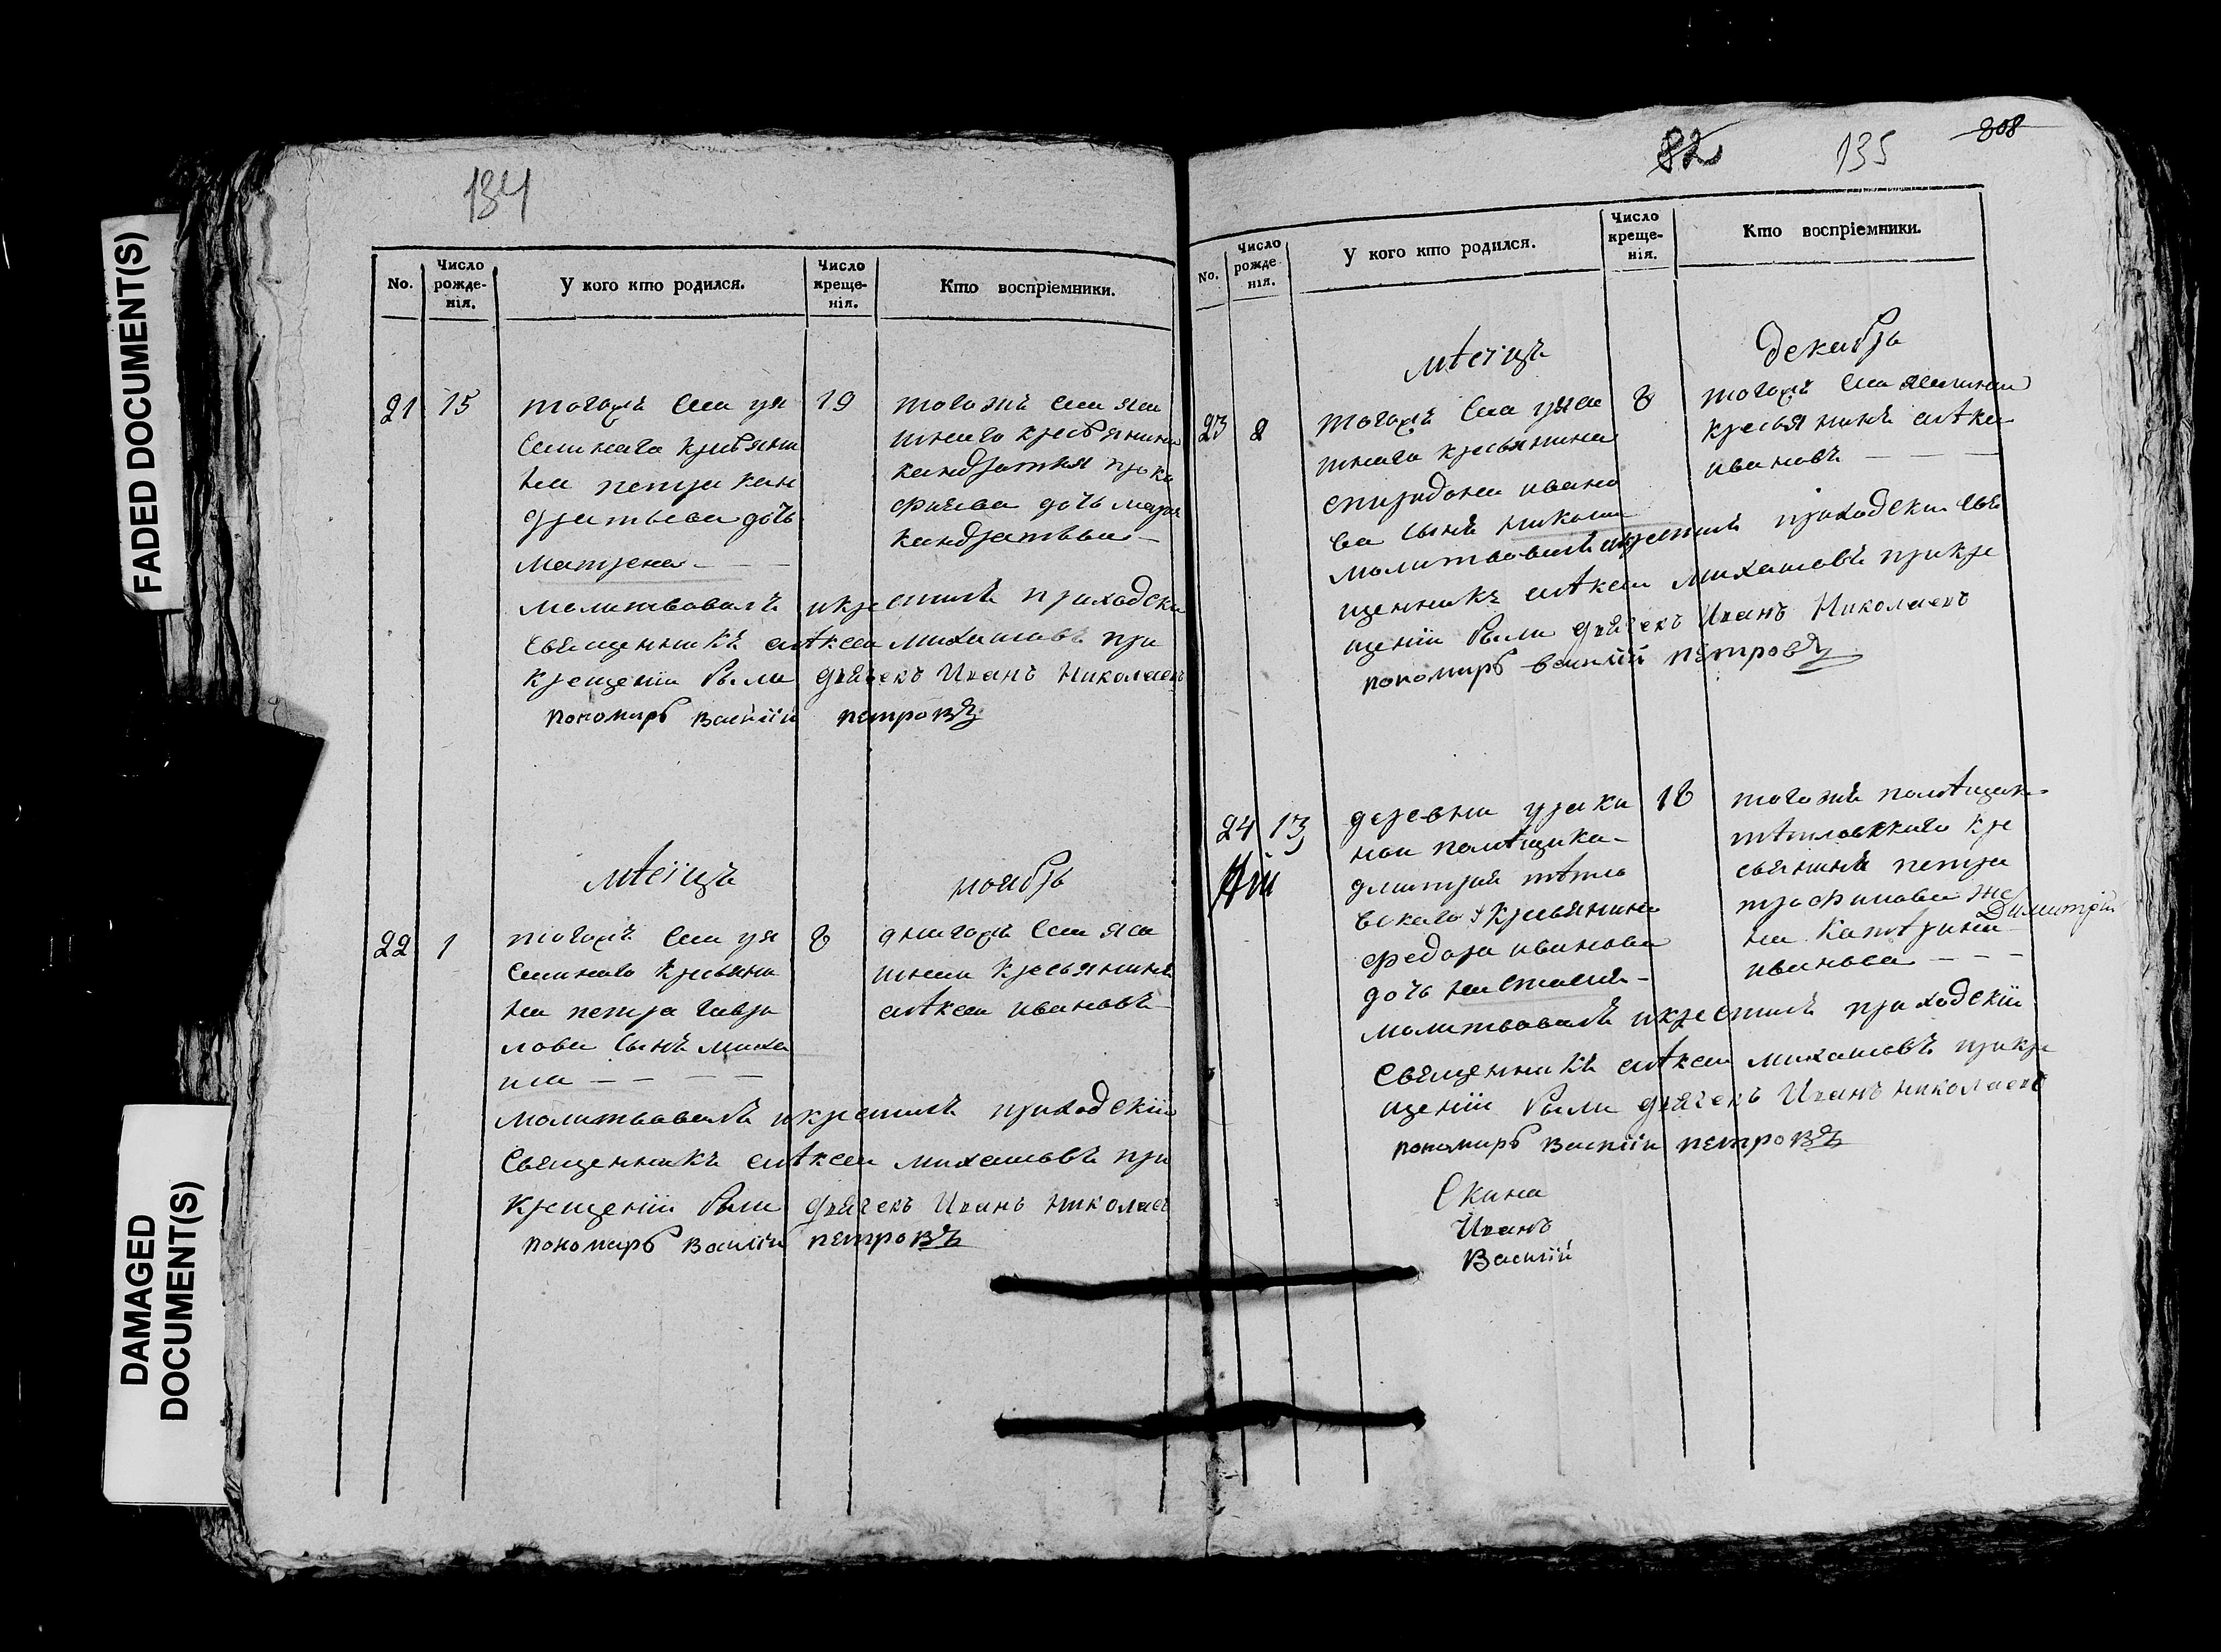 FADED DOCUMENT(S)
DAMAGED
DOCUMENT(S)
134
No.
Число
рожде-
нія.
У кого кто родился.
Число
креще-
нія.
Кто воспріемники.
21 15
тогожъ
крестьяни
на петра кан
дратьева дочь
матрена
19
тогожъ
крестьянина
кандратья проко
фиева дочь
кандратьева
молитвовалъ и крестилъ приходски
священникъ алѣксеи михаиловъ при
крещеніи были дьячекъ Иванъ Николаевъ
пономарь Василіи петровъ
мѣсіцъ ноябрь
22 1
тогожъ
крестьяни
на петра гаври
лова сынъ миха
ила
8
крестьянинъ
алѣксеи ивановъ
молитвовалъ и крестилъ приходскіи
Священникъ алѣксеи михаиловъ при
крещеніи были дьячекъ Иванъ николаевъ
пономарь Василіи петровъ
82 135 808
No.
Число
рожде-
нія.
У кого кто родился.
Число
креще-
нія.
Кто воспріемники.
мѣсіцъ декабрь
23 2
тогожъ
крестьянина
спиридона ивано
ва сынъ никола
8
тогожъ
крестьянинъ алѣксе
ивановъ
молитвовалъ и крестилъ приходски свя
щенникъ алѣксеи михаиловъ прикре
щеніи были дьячекъ Иванъ Николаевъ
пономарь василіи петровъ
24 13
деревни
помѣщика
дмитрия
крестьянина
федора иванова
дочь настасия
18
тогожъ помѣщика
кре
стьянина петра
трофимова же
Димитрій
на катѣрина
иванова
молитвовалъ и крестилъ приходскіи
Священникъ алѣксеи михаиловъ прикре
щеніи были дьячекъ Иванъ николаевъ
пономарь Василіи петровъ
Иванъ
Василіи